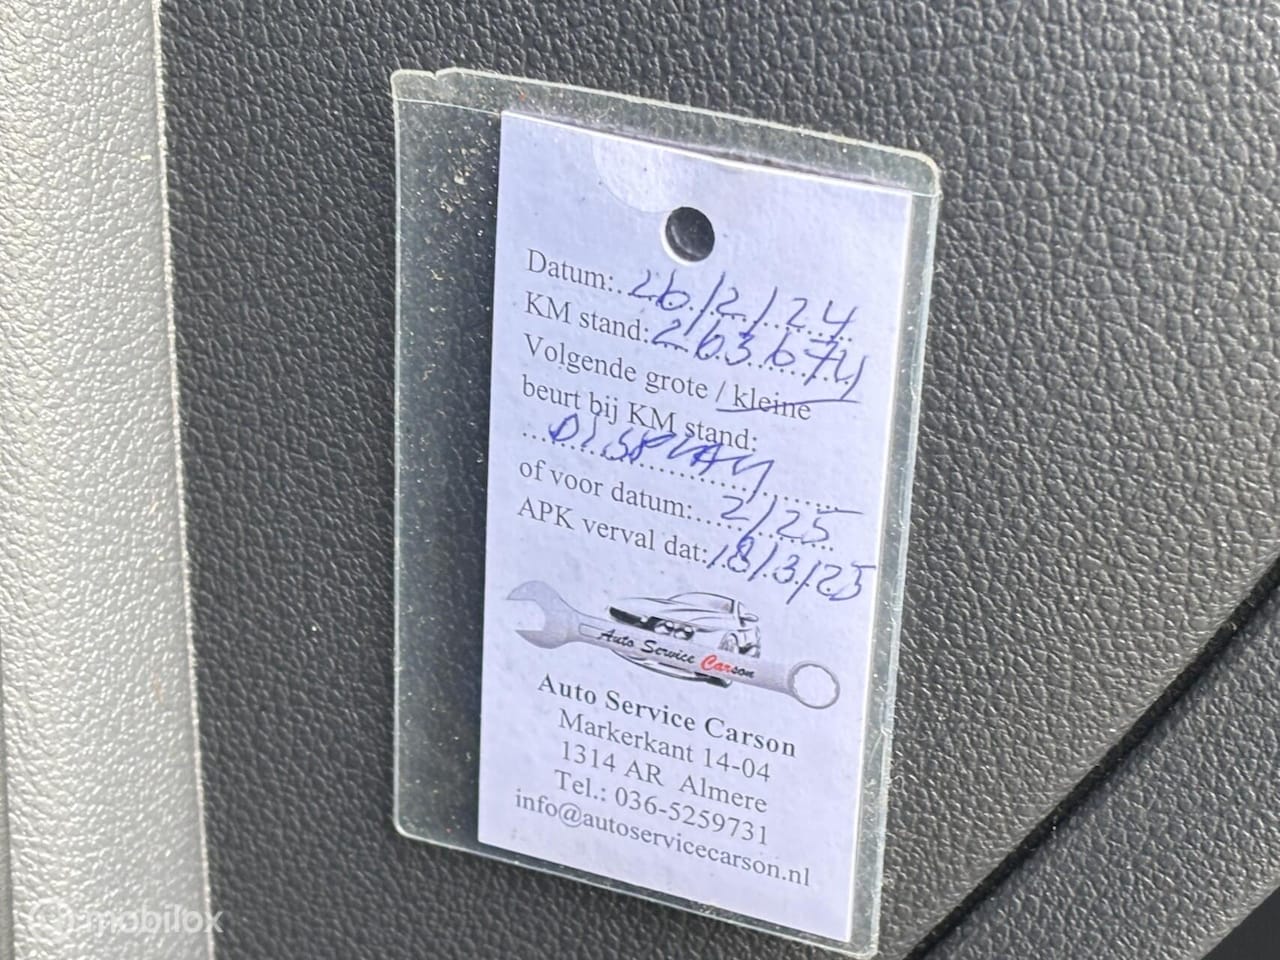 Datum: 26/2/24
KM stand: 263674
Volgende grote / kleine
beurt bij KM stand:
DISPLAY
of voor datum: 2/25
APK verval dat: 18/3/25
Auto Service Carson
Auto Service Carson
Markerkant 14-04
1314 AR Almere
Tel.: 036-5259731
info@autoservicecarson.nl
mobilox